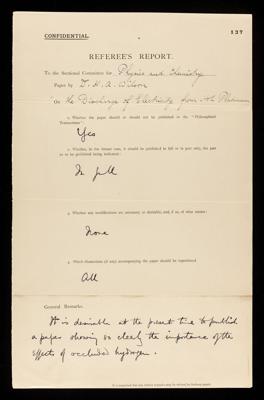 CONFIDENTIAL.
137
REFEREE'S REPORT.
To the Sectional Committee for Physics and Chemistry
Paper by D. H. A. Wilson
On the Discharge of Electricity from Hot Platinum
1. Whether the paper should or should not be published in the "Philosophical
Transactions":
Yes
2. Whether, in the former case, it should be published in full or in part only, the part
so to be published being indicated:
In full
3. Whether any modifications are necessary or desirable, and, if so, of what nature:
None
4. Which illustrations (if any) accompanying the paper should be reproduced
All
General Remarks.
It is desirable at the present time to publish
a paper showing so clearly the importance of the
effects of occluded hydrogen.